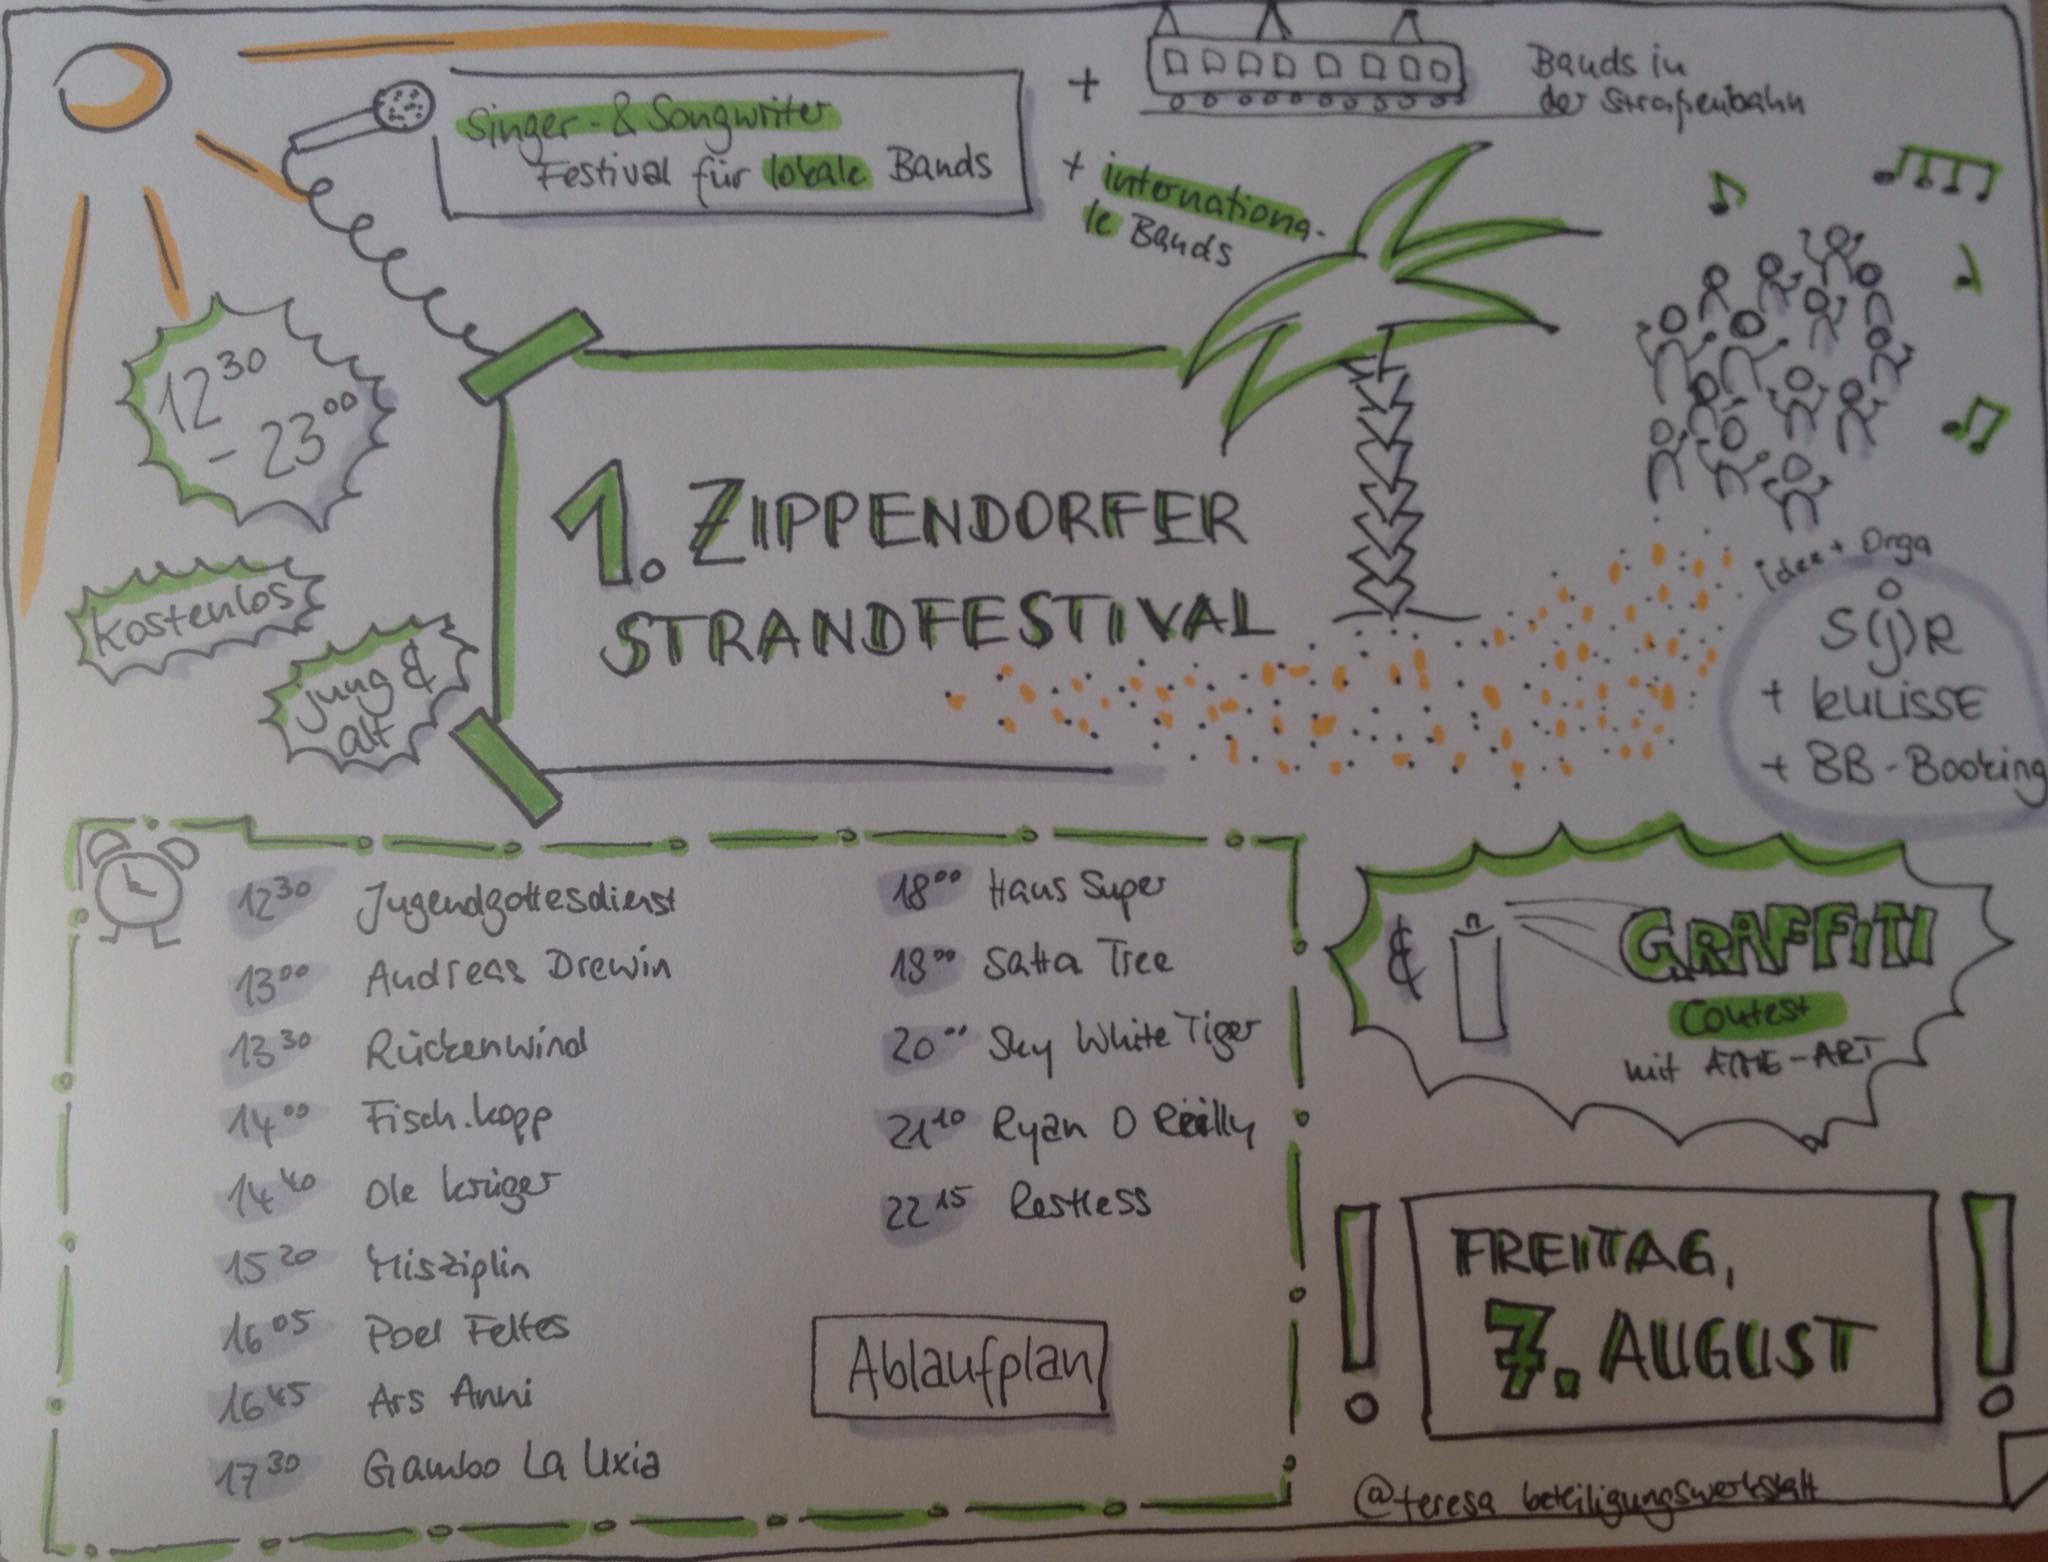 Singer- & Songwriter
Festival für lokale Bands
+
Bands in
der Straßenbahn
+ internationa-
le Bands
12 30
- 23 00
kostenlos
jung &
alt
1. ZIPPENDORFER
STRANDFESTIVAL
idee + Orga
S(j)R
+ KULISSE
+ BB-Booking
12 30 Jugendgottesdienst
13 00 Andreas Drewin
13 30 Rückenwind
14 00 Fisch.kopp
14 40 Ole krüger
15 20 Misziplin
16 05 Poel Feltes
16 45 Ars Anni
17 30 Gamboo La Uxia
18 00 Haus Super
19 00 Satta Tree
20 00 Sky White Tiger
21 10 Ryan O Reilly
22 15 Restless
Ablaufplan
& GRAFFITI
Contest
mit -ART
! FREITAG, !
7. AUGUST
@teresa beteiligungswerkstatt